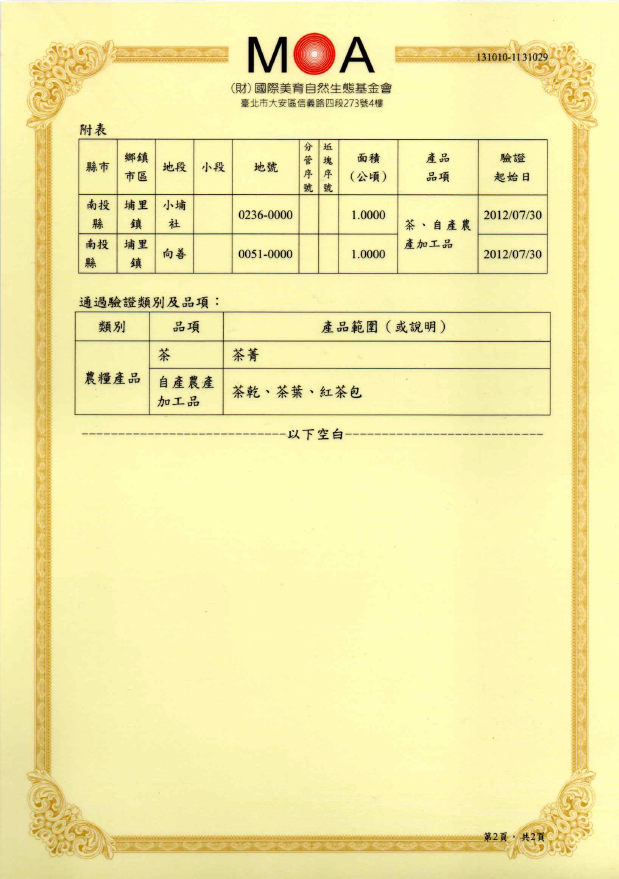 MOA
131010-1131029
(財)國際美育自然生態基金會
臺北市大安區信義路四段273號4樓
附表
縣市 鄉鎮市區 地段 小段 地號 分管序號 坵塊序號 面積(公頃) 產品品項 驗證起始日
南投縣 埔里鎮 小埔社 0236-0000 1.0000 茶、自產農產加工品 2012/07/30
南投縣 埔里鎮 向善 0051-0000 1.0000 2012/07/30
通過驗證類別及品項：
類別 品項 產品範圍（或說明）
農糧產品 茶 茶菁
自產農產加工品 茶乾、茶葉、紅茶包
以下空白
第2頁，共2頁